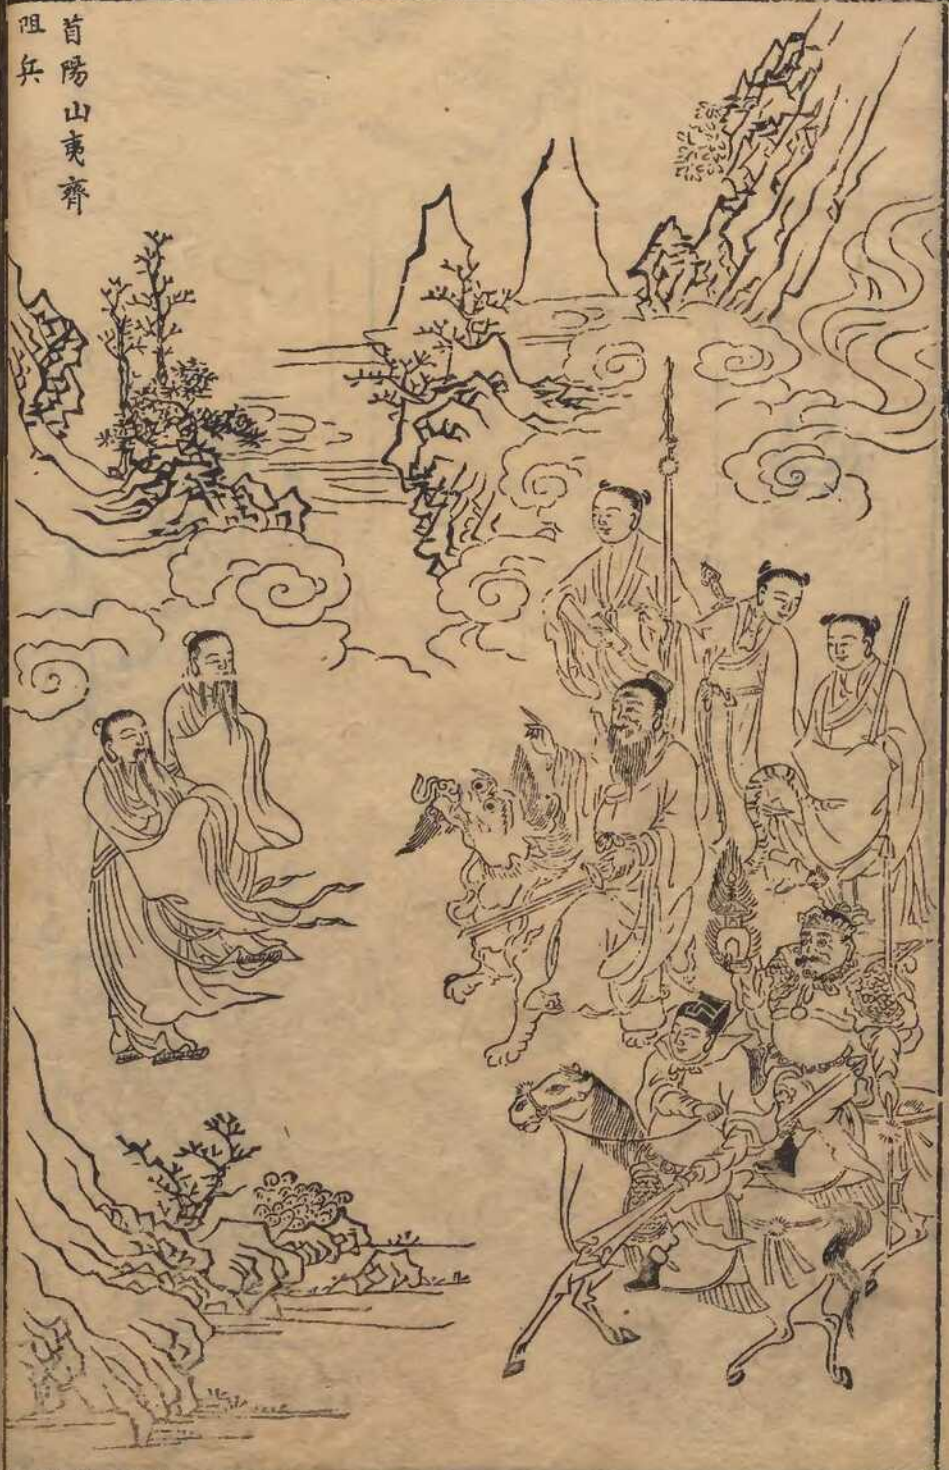 首陽山夷齊
阻兵